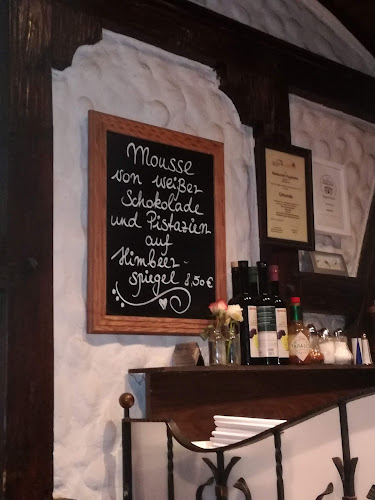 Mousse
von weißer
Schokolade
und Pistazien
auf
Himbeer-
spiegel 8,50€